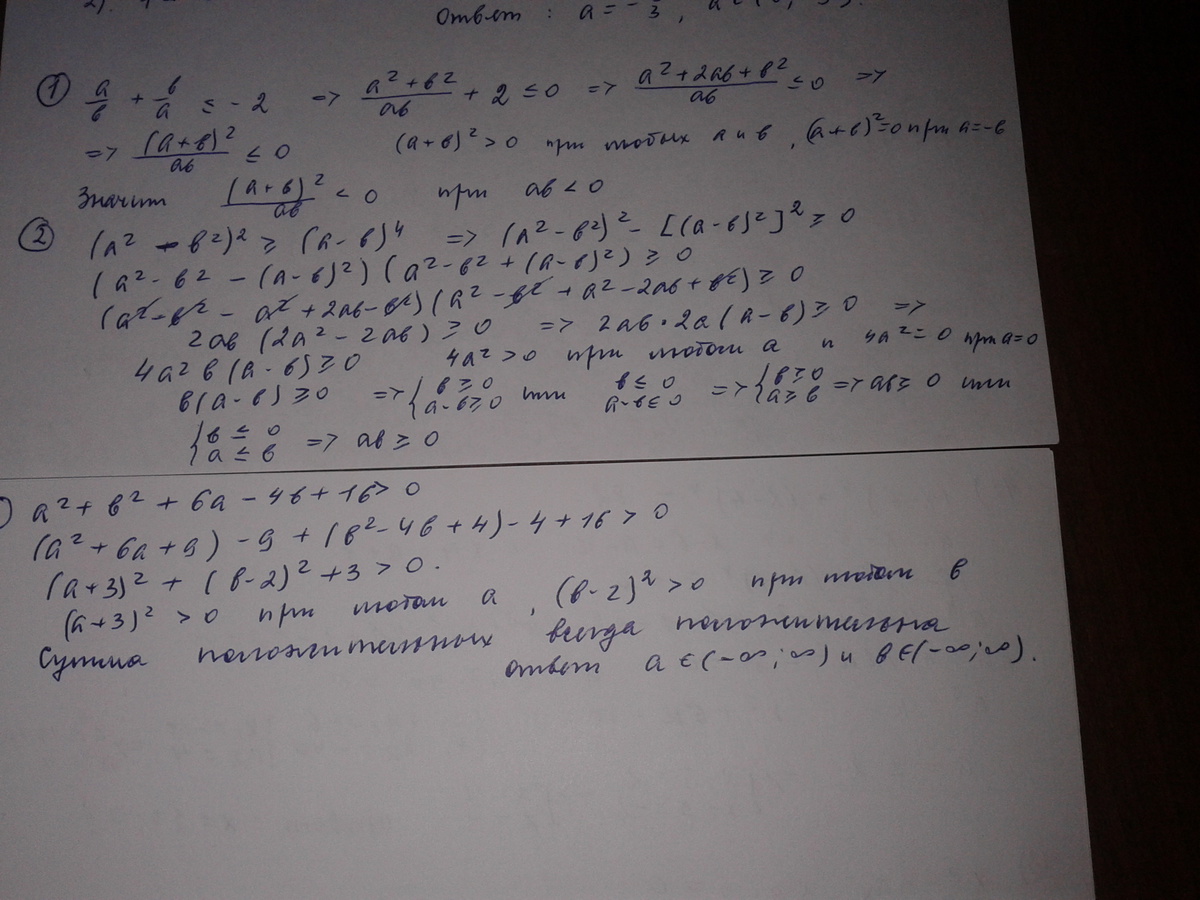 Ответ : a = -
3 , a
① a/в + в/a ≤ -2 => (a² + в²)/aв + 2 ≤ 0 => (a² + 2aв + в²)/aв ≤ 0 =>
=> (a + в)²/aв ≤ 0 (a + в)² > 0 при любых a и в , (a + в)² = 0 при a = -в
Значит (a + в)²/aв < 0 при aв < 0
② (a² - в²)² ≥ (a - в)⁴ => (a² - в²)² - [(a - в)²]² ≥ 0
(a² - в² - (a - в)²) (a² - в² + (a - в)²) ≥ 0
(a² - в² - a² + 2aв - в²) (a² - в² + a² - 2aв + в²) ≥ 0
2aв (2a² - 2aв) ≥ 0 => 2aв · 2a (a - в) ≥ 0 =>
4a² в (a - в) ≥ 0 4a² > 0 при любом a и 4a² = 0 при a = 0
в (a - в) ≥ 0 => { в ≥ 0 a - в ≥ 0 или в ≤ 0 a - в ≤ 0 => { в ≥ 0 a ≥ в => aв ≥ 0 или
{ в ≤ 0 a ≤ в => aв ≥ 0
) a² + в² + 6a - 4в + 16 > 0
(a² + 6a + 9) - 9 + (в² - 4в + 4) - 4 + 16 > 0
(a + 3)² + (в - 2)² + 3 > 0 .
(a + 3)² > 0 при любом a , (в - 2)² > 0 при любом в
Сумма положительных всегда положительна
ответ a ∈ (-∞ ; ∞) и в ∈ (-∞ ; ∞) .